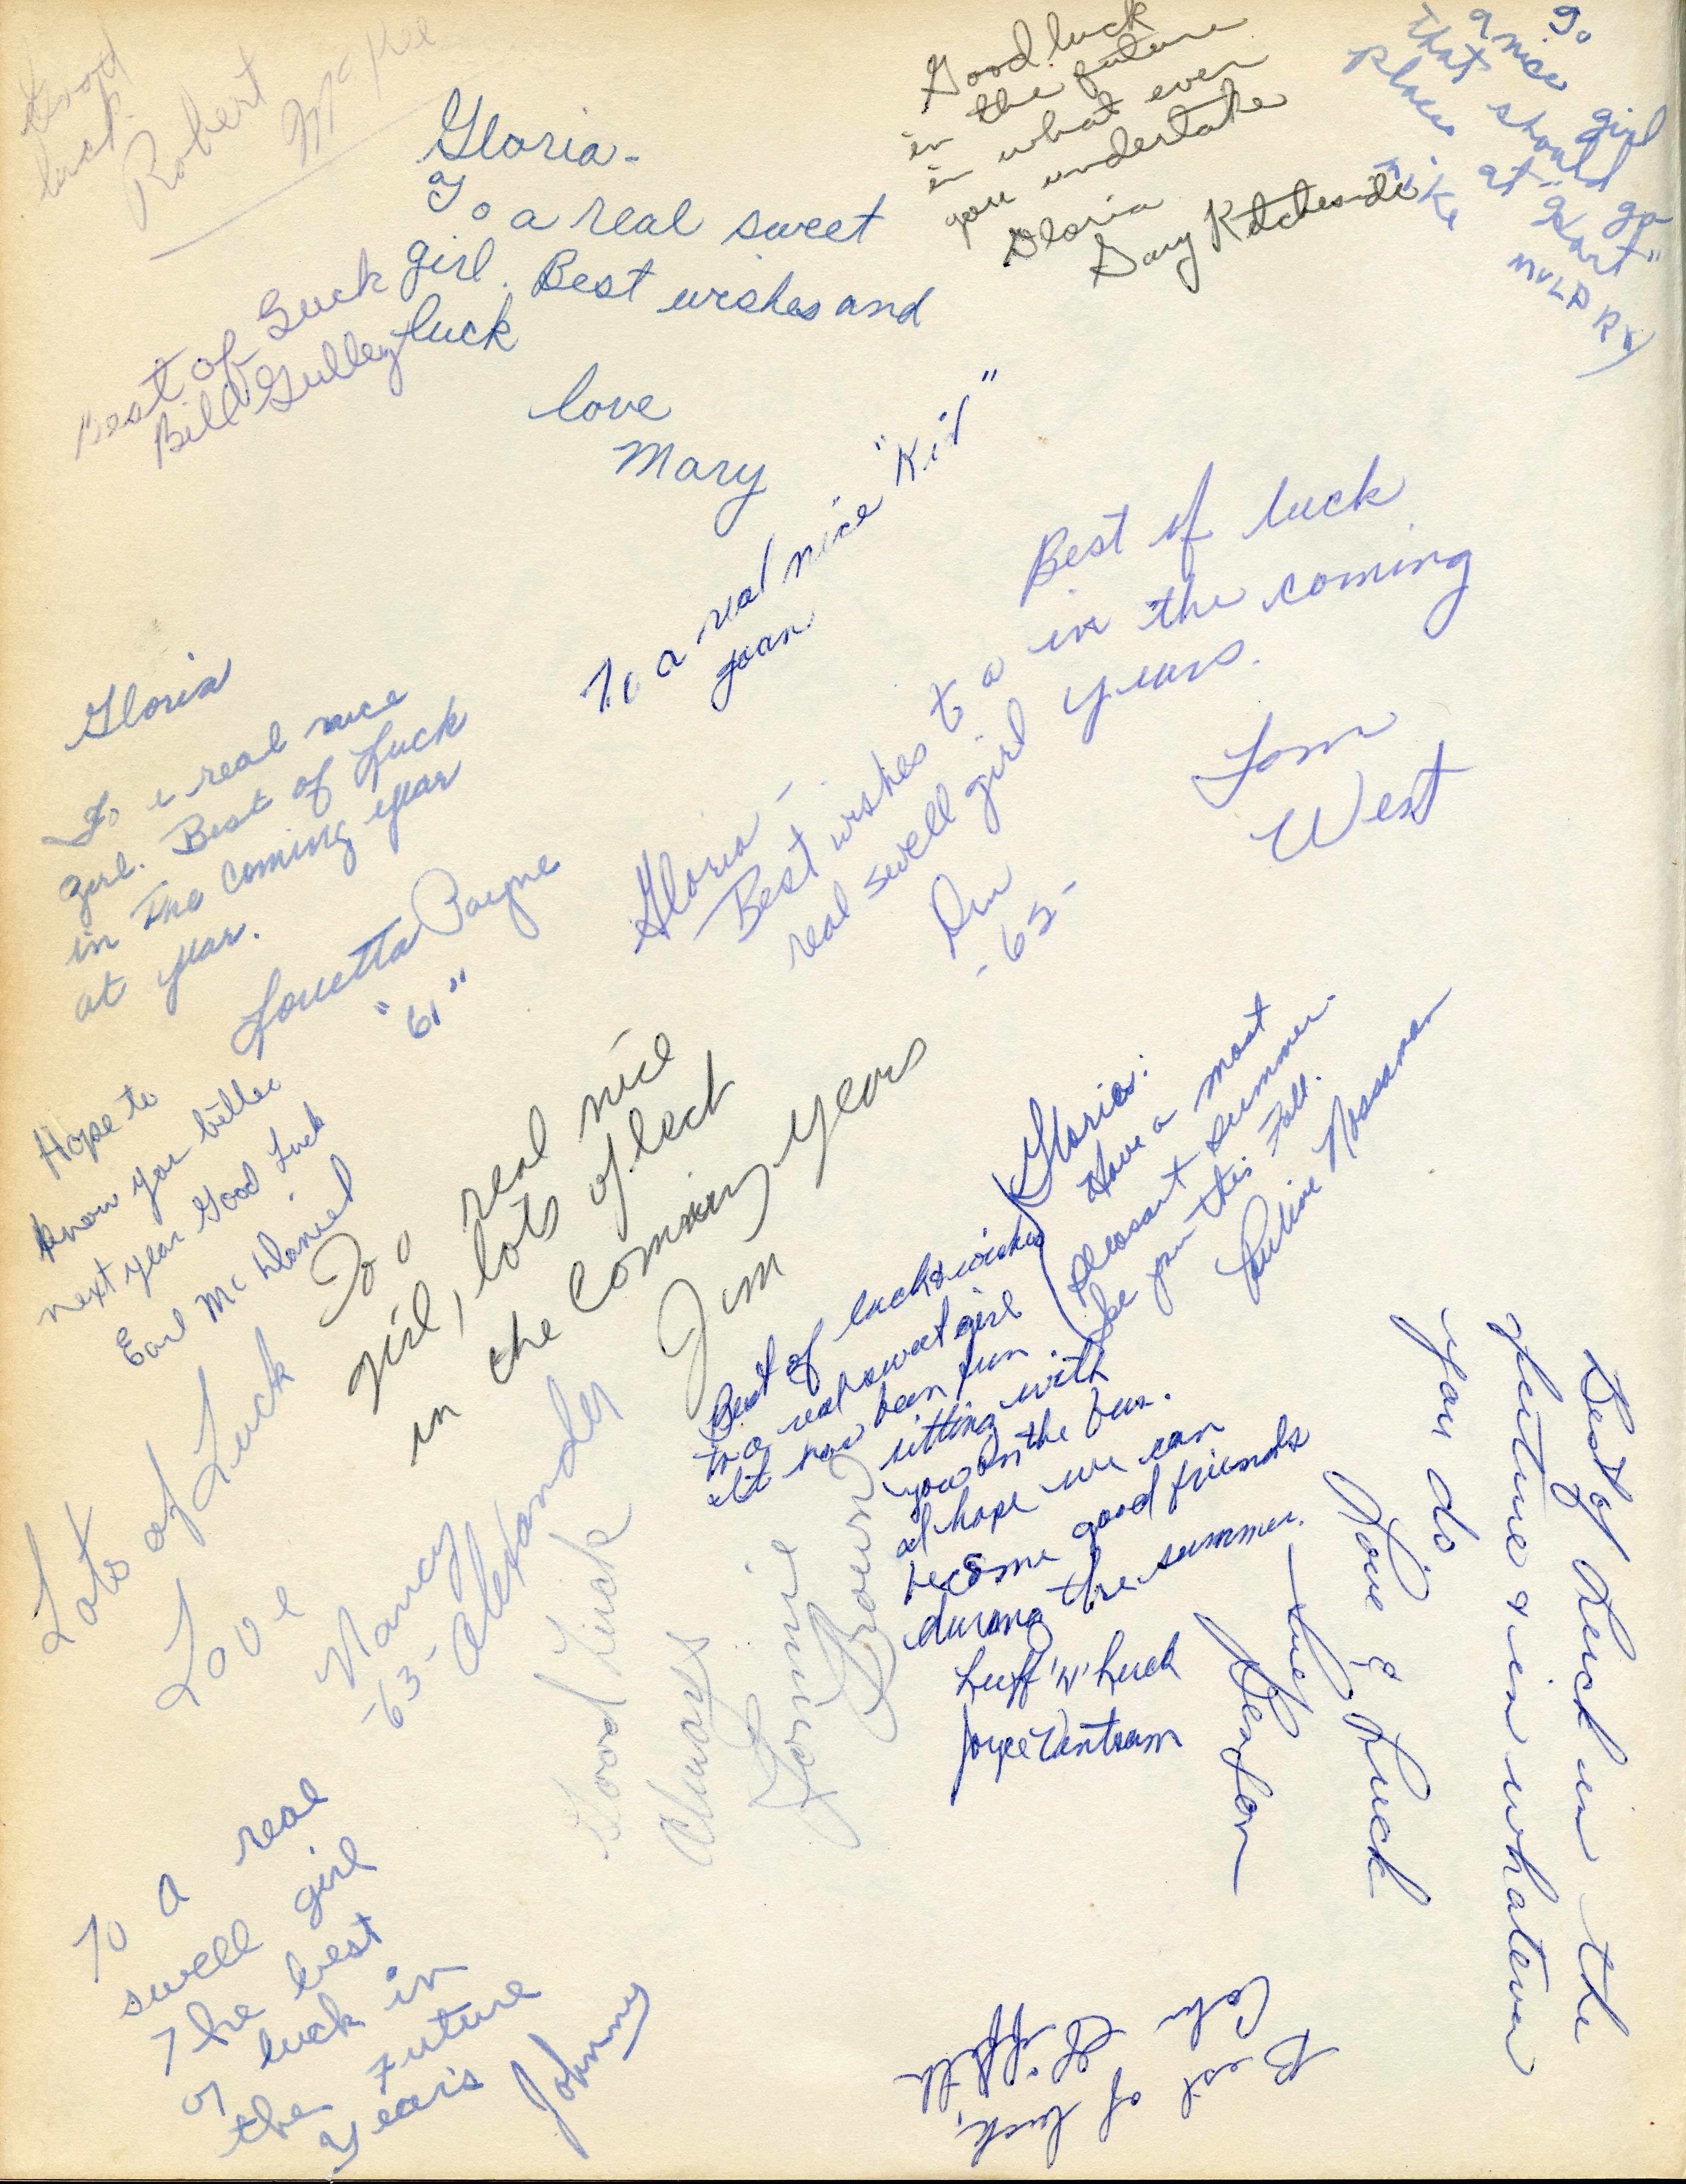 Good
luck
Robert
McKee
Gloria-
To a real sweet
girl. Best wishes and
luck
love
Mary
Good luck
in the future
in what ever
you undertake
Gloria
Gary Kitchens
To
a nice girl
that should go
places at "Hart"
Mike
Best of Luck
Bill Gulley
To a real nice "Kid"
Joan
Best of luck
in the coming
years.
Tom
West
Gloria
To a real nice
girl. Best of Luck
in The coming year
at year.
Louetta Payne
"61"
Gloria -
Best wishes to a
real swell girl
-62-
Hope to
know you better
next year Good Luck
Earl McDaniel
To a real nice
girl, lots of luck
in the comming years
Jim
Gloria:
Have a most
pleasant summer.
See you this Fall.
Pauline Nossaman
Best of luck & wishes
to a real sweet girl
It has been fun
sitting with
you on the bus.
I hope we can
become good friends
during the summer.
Luff 'n' Luck
Joyce Vantram
Lots of Luck
Love
Nancy
Alexander
-63-
Good Luck
Always
Jennie
Brown
Best of Luck in the
future & in whatever
you do
Love & Luck
Sue
To a real
swell girl
The best
of luck in
the future
years
Johnny
Best of luck,
Griffith